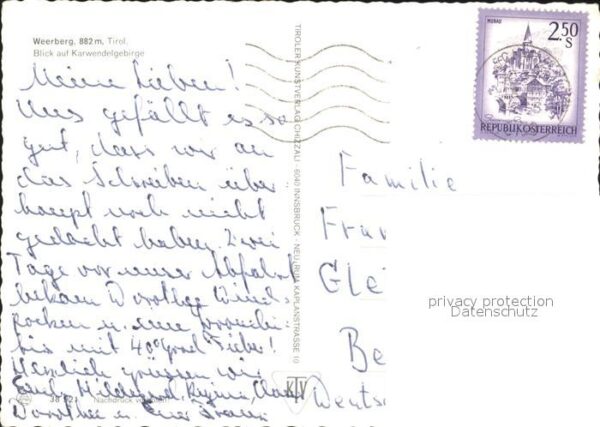 Weerberg. 882 m, Tirol.
Blick auf Karwendelgebirge
Meine Lieben!
Uns gefällt es so
gut, dass wir an
das Schreiben über-
haupt noch nicht
gedacht haben. Zwei
Tage vor unserer Abfahrt
bekam Dorothee Wind-
pocken u. eine
bis mit 40 Grad Fieber!
Herzlich grüssen wir
Hildegard, Regina,
Dorothee u. Eure
Nachdruck
TIROLER KUNSTVERLAG CHIZZALI · 6040 INNSBRUCK · NEU-RUM KAPLANSTRASSE 10
KTV
MURAU
2.50
S
REPUBLIK ÖSTERREICH
Familie
Fran
Glei
Be
Deutsc
privacy protection
Datenschutz